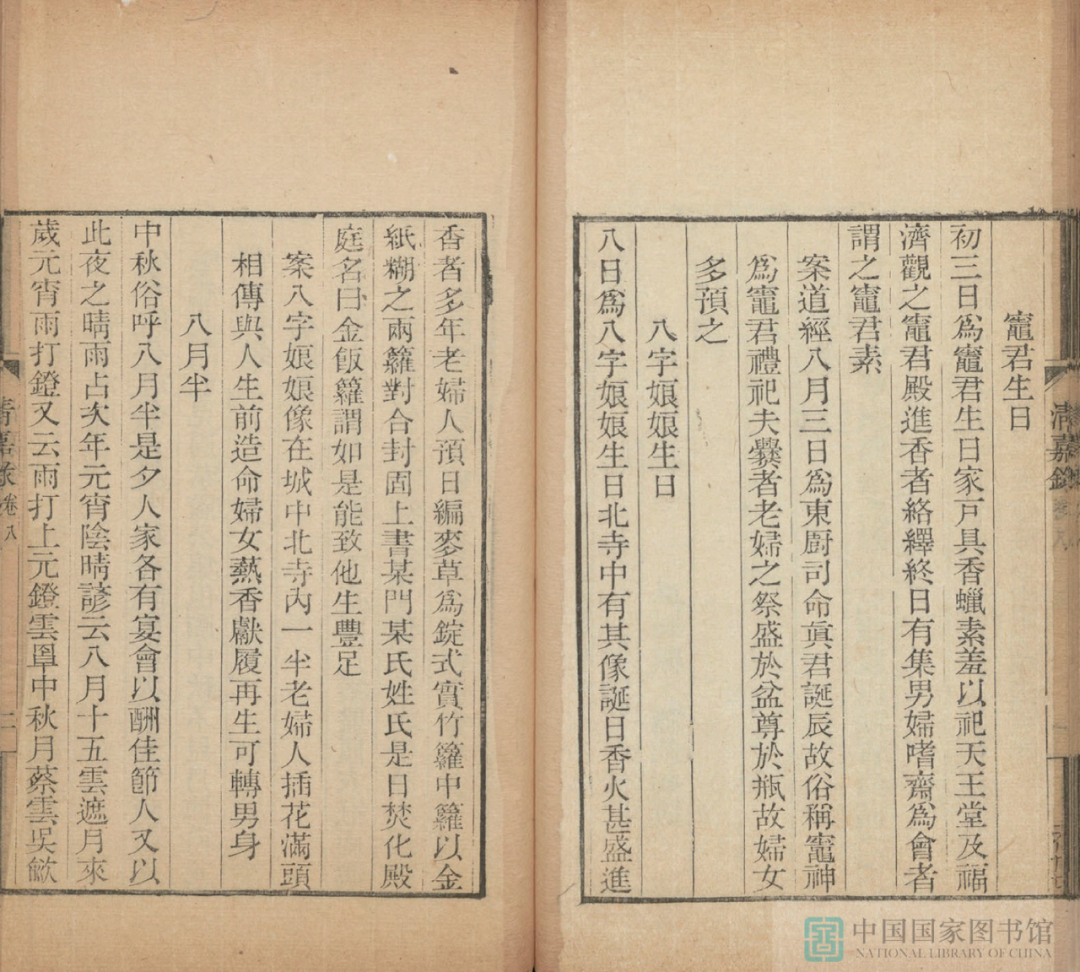 清嘉錄
竈君生日
初三日爲竈君生日家戸具香蠟素羞以祀天王堂及福
濟觀之竈君殿進香者絡繹終日有集男婦嗜齋爲會者
謂之竈君素
案道經八月三日爲東厨司命眞君誕辰故俗稱竈神
爲竈君禮祀夫爨者老婦之祭盛於盆尊於瓶故婦女
多預之
八字娘娘生日
八日爲八字娘娘生日北寺中有其像誕日香火甚盛進
香者多年老婦人預日編麥草爲錠式實竹籮中籮以金
紙糊之兩籮對合封固上書某門某氏姓氏是日焚化殿
庭名曰金飯籮謂如是能致他生豐足
案八字娘娘像在城中北寺內一半老婦人插花滿頭
相傳與人生前造命婦女爇香獻履再生可轉男身
八月半
中秋俗呼八月半是夕人家各有宴會以酬佳節人又以
此夜之晴雨占次年元宵陰晴諺云八月十五雲遮月來
歲元宵雨打鐙又云雨打上元鐙雲罩中秋月蔡雲吳歈
清嘉錄 卷八
二
中国国家图书馆
NATIONAL LIBRARY OF CHINA